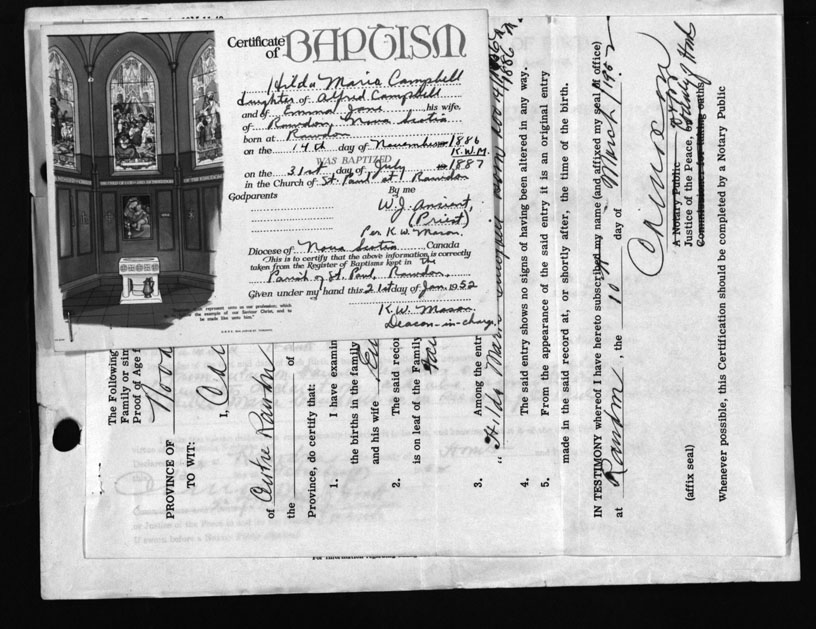 Certificate of BAPTISM
Hilda Maria Campbell
daughter of Alfred Campbell
and of Emma Jane, his wife.
of Rawdon, Nova Scotia
born at Rawdon
on the 14th day of November 1886
K.W.M.
WAS BAPTIZED
on the 31st day of July 1887
in the Church of St. Paul at Rawdon
Godparents By me
W.J. Ancient,
(Priest)
Per K.W. Mason.
Diocese of Nova Scotia Canada
This is to certify that the above information is correctly
taken from the Register of Baptisms kept in the
Parish of St. Paul, Rawdon.
Given under my hand this 21st day of Jan. 1952
K.W. Mason.
Deacon-in-charge.
represent unto us our profession; which
the example of our Saviour Christ, and to
be made like unto him."
The Following
Family or sim
Proof of Age f
PROVINCE OF
TO WIT:
I,
of Centre Rawdon
the of
Province, do certify that:
1. I have examin
the births in the family
and his wife
2. The said recor
is on leaf of the Family
3. Among the entr
" Hilda Maria Campbell born Nov 14, 1886 "
4. The said entry shows no signs of having been altered in any way.
5. From the appearance of the said entry it is an original entry
made in the said record at, or shortly after, the time of the birth.
IN TESTIMONY whereof I have hereto subscribed my name (and affixed my seal of office)
at Rawdon, the 10 day of March, 1952
A Notary Public
Justice of the Peace,
Commissioner for taking oaths
(affix seal)
Whenever possible, this Certification should be completed by a Notary Public